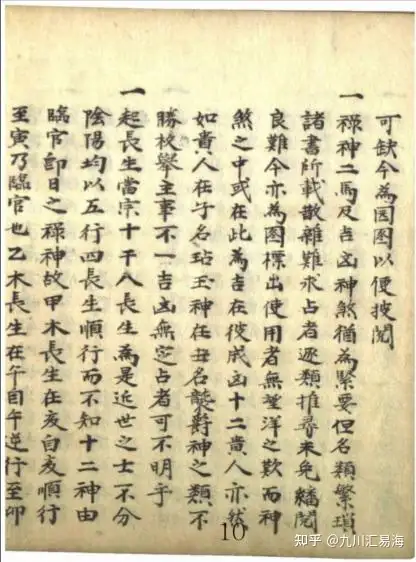 可缺今為因圖以便披閱
一祿神二馬及吉凶神煞猶為緊要但名類繁瑣
諸書所載散雜難求占者逐類推尋未免繙閱
良難今亦為圖標出使用者無望洋之歎而神
煞之中或在此為吉在彼成凶十二貴人亦然
如貴人在子名玷玉神在丑名襲爵神之類不
勝枚舉主事不一吉凶無定占者可不明乎
一起長生當宗十干八長生為是近世之士不分
陰陽均以五行四長生順行而不知十二神由
臨官即日之祿神故甲木長生在亥自亥順行
至寅乃臨官也乙木長生在午自午逆行至卯
10
知乎 @九川汇易海